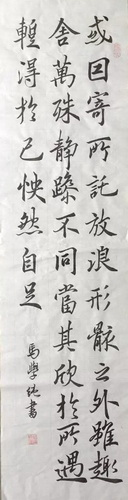 或因寄所託放浪形骸之外雖趣
舍萬殊静躁不同當其欣於所遇
暫得於己怏然自足
馬學純書